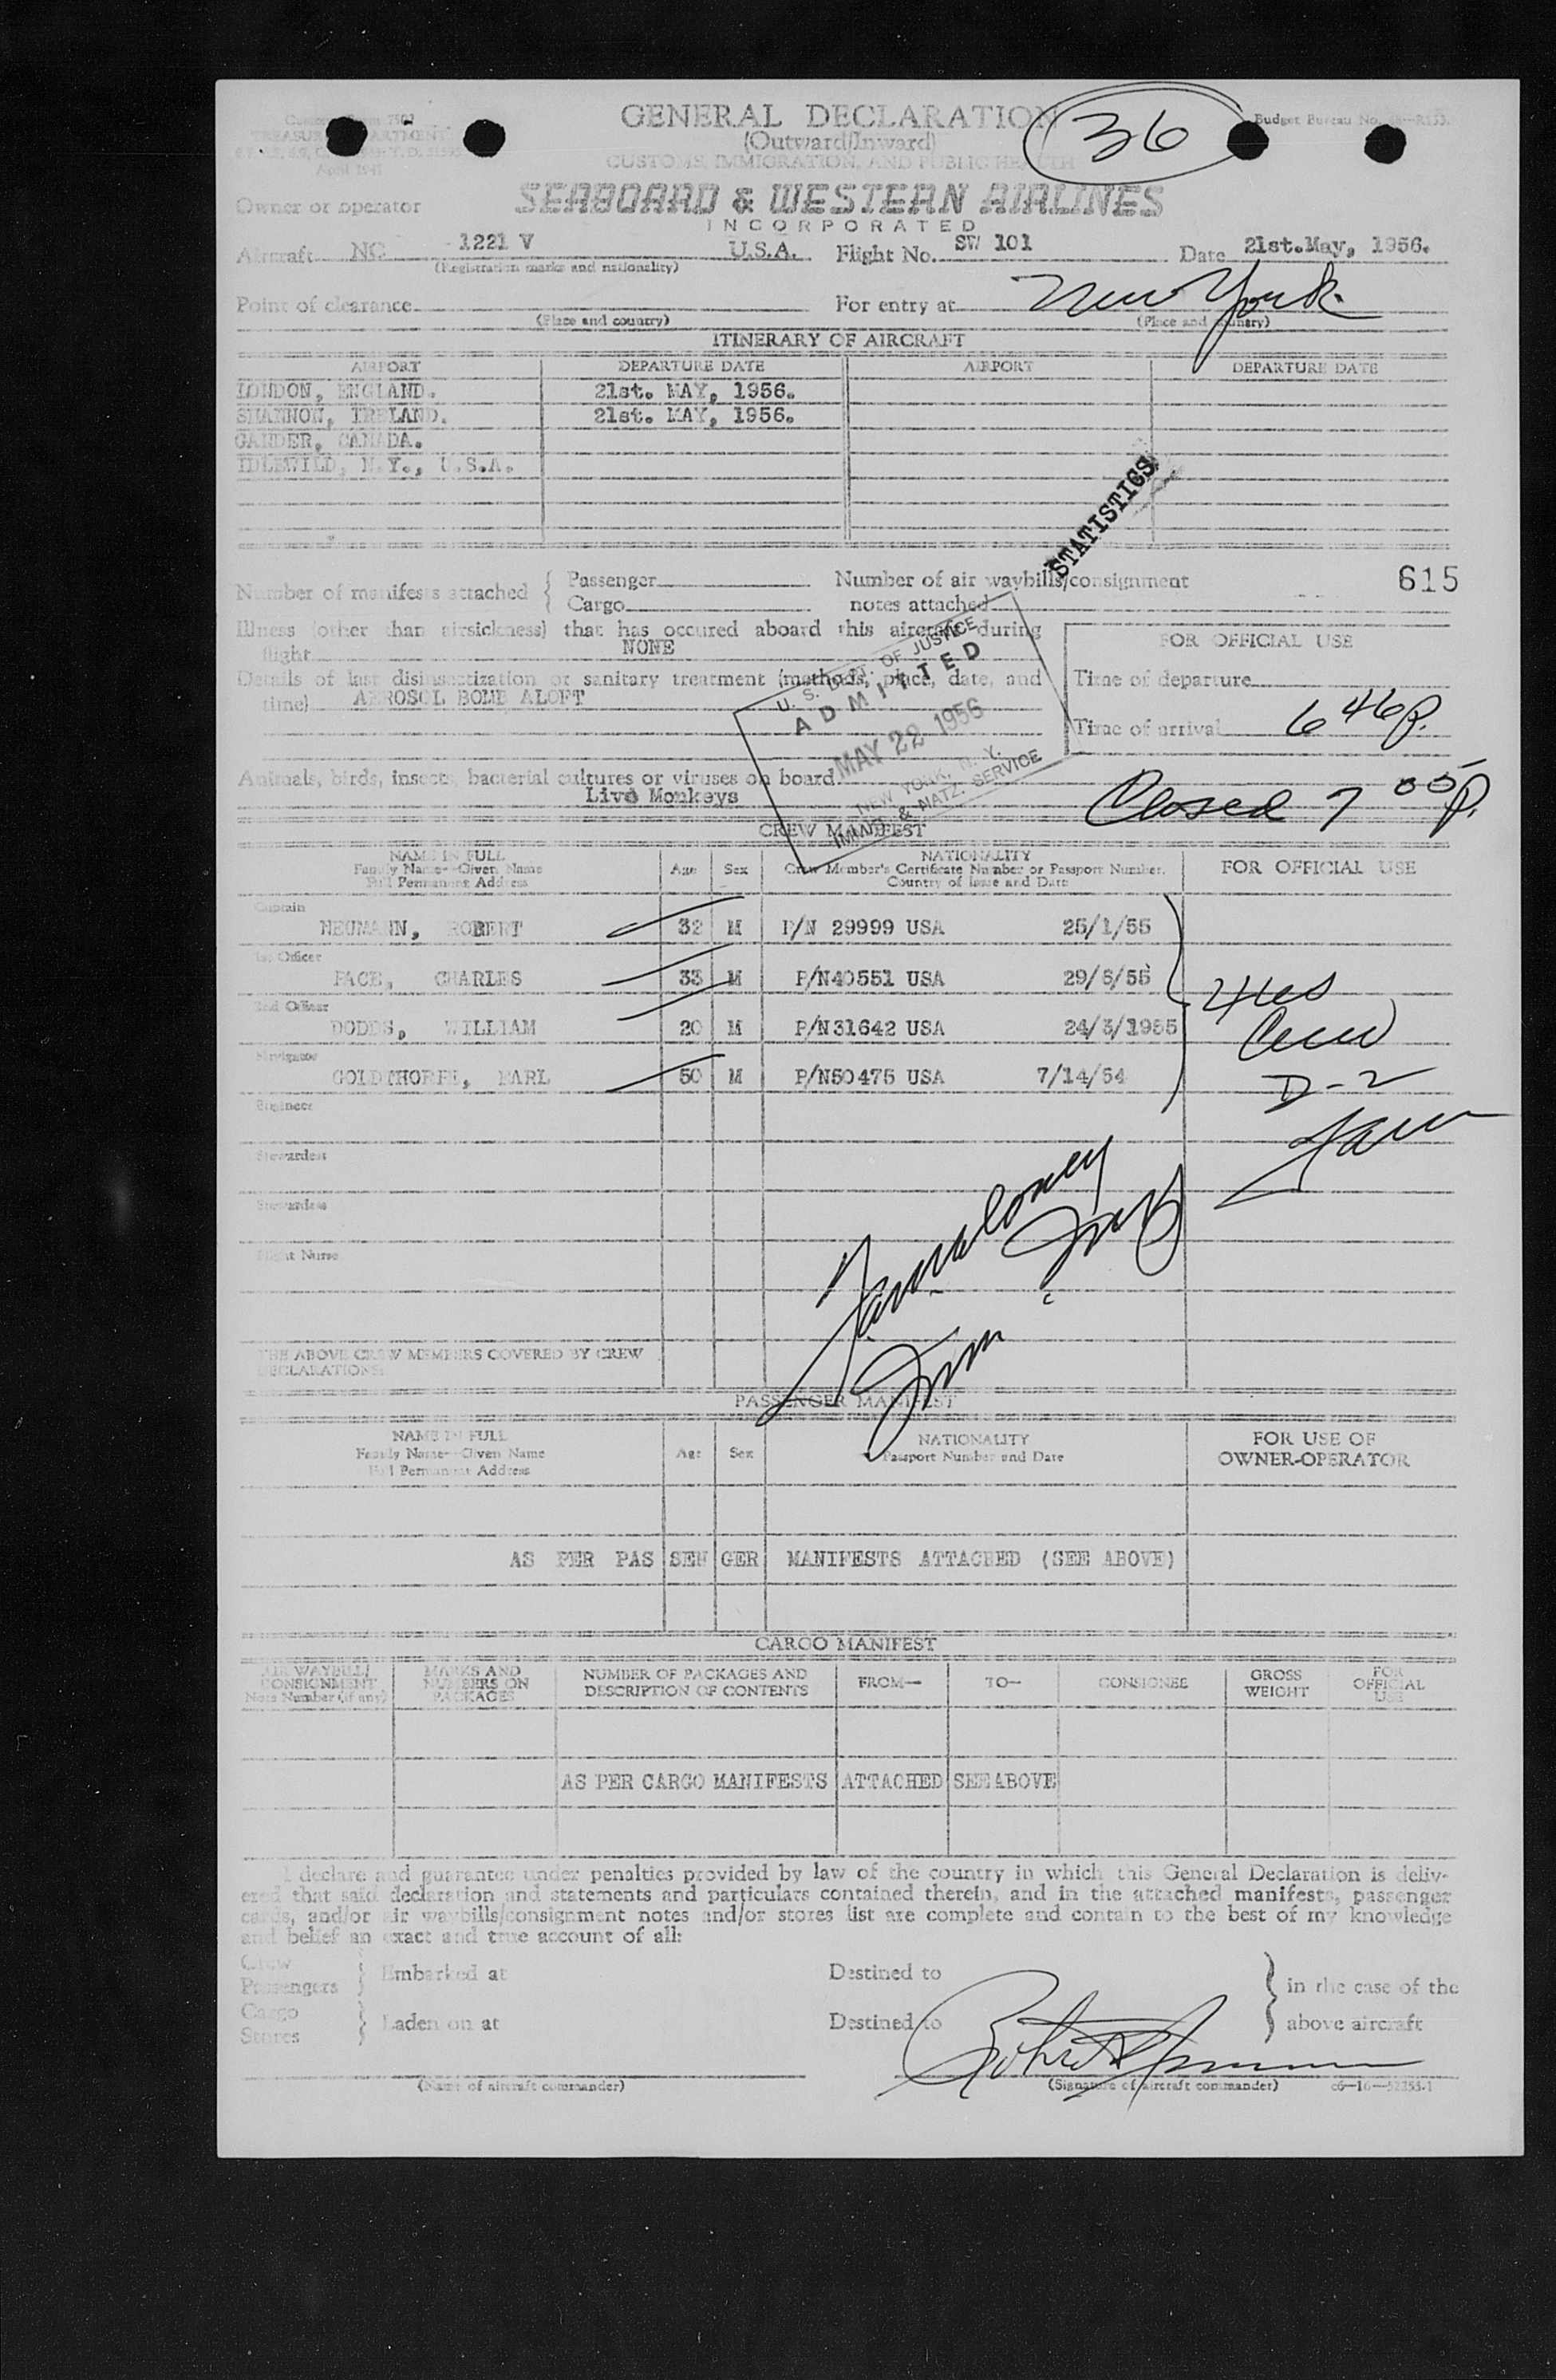 GENERAL DECLARATION
(Outward/Inward)
CUSTOMS, IMMIGRATION, AND PUBLIC HEALTH
36
TREASURY DEPARTMENT
April 1947
Budget Bureau No.
Owner or operator
SEABOARD & WESTERN AIRLINES
INCORPORATED
Aircraft NC 1221 V U.S.A. Flight No. SW 101 Date 21st.May, 1956.
(Registration marks and nationality)
Point of clearance For entry at New York
(Place and country) (Place and country)
ITINERARY OF AIRCRAFT
AIRPORT DEPARTURE DATE AIRPORT DEPARTURE DATE
LONDON, ENGLAND. 21st. MAY, 1956.
SHANNON, IRELAND. 21st. MAY, 1956.
GANDER, CANADA.
IDLEWILD, N.Y., U.S.A.
STATISTICS
Number of manifests attached { Passenger Number of air waybills/consignment 615
Cargo notes attached
Illness (other than airsickness) that has occured aboard this aircraft during
flight NONE
FOR OFFICIAL USE
Details of last disinsectization or sanitary treatment (methods, place, date, and
time) AEROSOL BOMB ALOFT
Time of departure
Time of arrival 6 46 P.
U. S. DEPT. OF JUSTICE
ADMITTED
MAY 22 1956
NEW YORK, N. Y.
IMMIG. & NATZ. SERVICE
Animals, birds, insects, bacterial cultures or viruses on board
Live Monkeys
Closed 7 05 P.
CREW MANIFEST
NAME IN FULL
Family Name--Given Name
Full Permanent Address
Age Sex
NATIONALITY
Crew Member's Certificate Number or Passport Number.
Country of Issue and Date
FOR OFFICIAL USE
Captain
NEUMANN, ROBERT 32 M P/N 29999 USA 25/1/55
1st Officer
PACE, CHARLES 33 M P/N40551 USA 29/6/55
2nd Officer
DODDS, WILLIAM 20 M P/N31642 USA 24/3/1955
Navigator
GOLDTHORPE, EARL 50 M P/N50475 USA 7/14/54
Crew
D-2
Engineer
Stewardess
Stewardess
Flight Nurse
THE ABOVE CREW MEMBERS COVERED BY CREW
DECLARATIONS
PASSENGER MANIFEST
NAME IN FULL
Family Name--Given Name
Full Permanent Address
Age Sex
NATIONALITY
Passport Number and Date
FOR USE OF
OWNER-OPERATOR
AS PER PAS SEN GER MANIFESTS ATTACHED (SEE ABOVE)
CARGO MANIFEST
AIR WAYBILL/
CONSIGNMENT
Note Number (if any)
MARKS AND
NUMBERS ON
PACKAGES
NUMBER OF PACKAGES AND
DESCRIPTION OF CONTENTS
FROM— TO— CONSIGNEE
GROSS
WEIGHT
FOR
OFFICIAL
USE
AS PER CARGO MANIFESTS ATTACHED SEE ABOVE
I declare and guarantee under penalties provided by law of the country in which this General Declaration is deliv-
ered that said declaration and statements and particulars contained therein, and in the attached manifests, passenger
cards, and/or air waybills/consignment notes and/or stores list are complete and contain to the best of my knowledge
and belief an exact and true account of all:
Crew
Passengers } Embarked at Destined to } in the case of the
Cargo
Stores } Laden on at Destined to above aircraft
(Name of aircraft commander) (Signature of aircraft commander) c6—16—52253-1